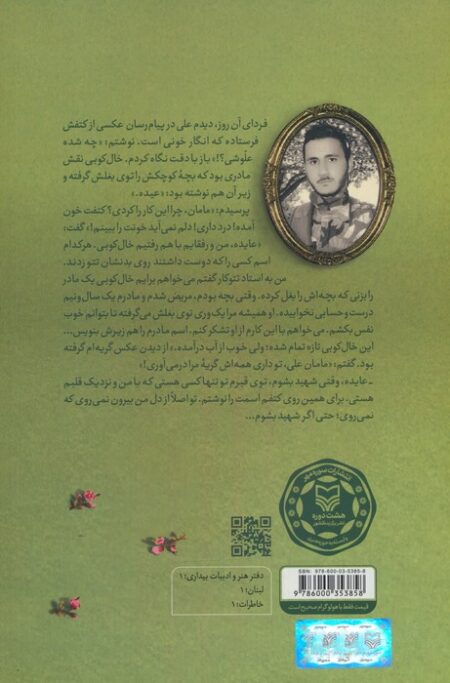 فردای آن روز، دیدم علی در پیام‌رسان عکسی از کتفش
فرستاده که انگار خونی است. نوشتم: «چه شده
علّوشی؟!» باز با دقت نگاه کردم. خال‌کوبی نقش
مادری بود که بچهٔ کوچکش را توی بغلش گرفته و
زیر آن هم نوشته بود: «عیده.»
پرسیدم: «مامان، چرا این کار را کردی؟ کتفت خون
آمده! درد داری! دلم نمی‌آید خونت را ببینم!» گفت:
«عایده، من و رفقایم با هم رفتیم خال‌کوبی. هرکدام
اسم کسی را که دوست داشتند روی بدنشان تتو زدند.
من به استاد تتوکار گفتم می‌خواهم برایم خال‌کوبی یک مادر
را بزنی که بچه‌اش را بغل کرده. وقتی بچه بودم، مریض شدم و مادرم یک سال‌ونیم
درست‌وحسابی نخوابیده. او همیشه مرا یک‌وری توی بغلش می‌گرفته تا بتوانم خوب
نفس بکشم. می‌خواهم با این کارم از او تشکر کنم. اسم مادرم را هم زیرش بنویس...
این خال‌کوبی تازه تمام شده؛ ولی خوب از آب درآمده.» از دیدن عکس گریه‌ام گرفته
بود. گفتم: «مامان علی، تو داری همه‌اش گریهٔ مرا درمی‌آوری!»
ـ عایده، وقتی شهید بشوم، توی قبرم تو تنها کسی هستی که با من و نزدیک قلبم
هستی. برای همین روی کتفم اسمت را نوشتم. تو اصلاً از دل من بیرون نمی‌روی که
نمی‌روی؛ حتی اگر شهید بشوم...
انتشارات سوره مهر
هشت دوره
دفتر هنر و ادبیات بیداری: ۱
لبنان: ۱
خاطرات: ۱
ISBN: 978-600-03-5385-8
9 786000 353858
قیمت فقط با هولوگرام صحیح است